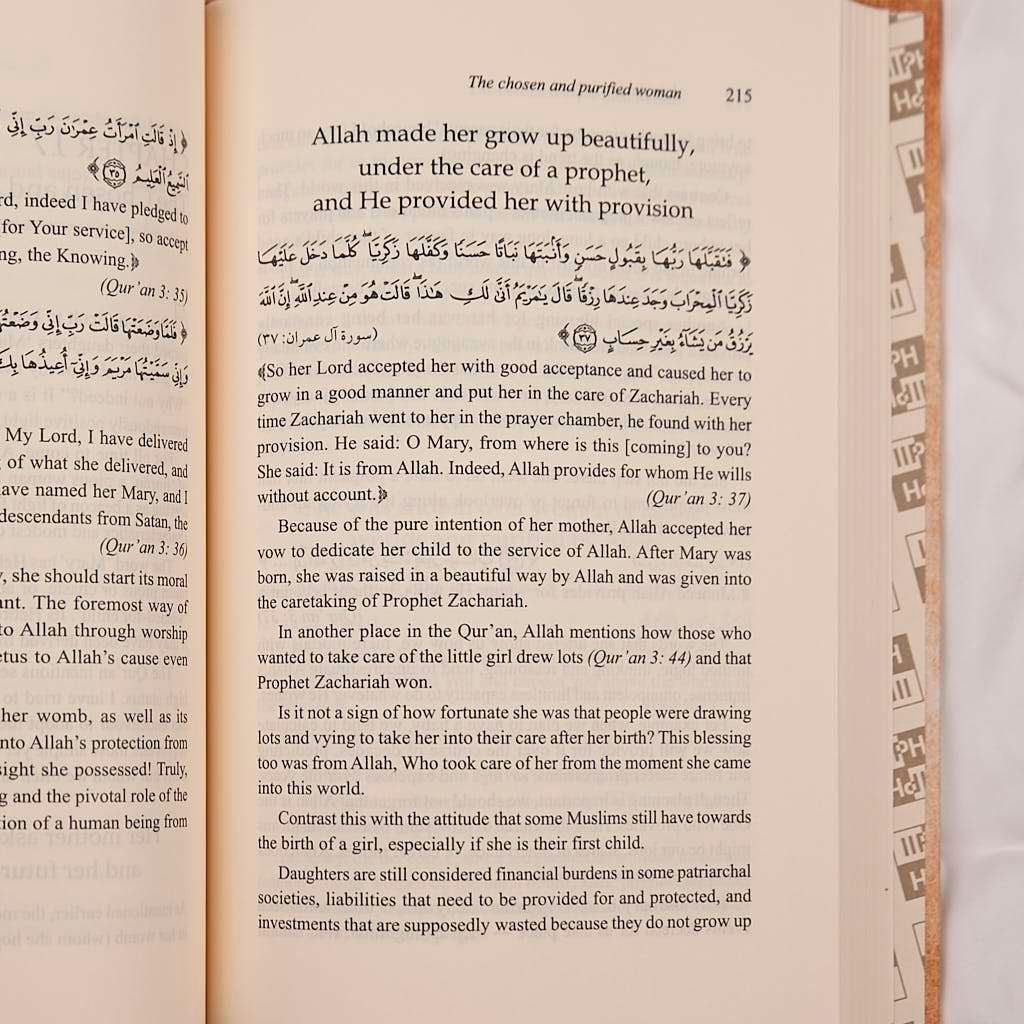 ﴿إِذْ قَالَتِ ٱمْرَأَتُ عِمْرَٰنَ رَبِّ إِنِّى
ٱلسَّمِيعُ ٱلْعَلِيمُ ﴿٣٥﴾
rd, indeed I have pledged to
for Your service], so accept
ng, the Knowing.﴿
(Qur'an 3: 35)
﴿فَلَمَّا وَضَعَتْهَا قَالَتْ رَبِّ إِنِّى وَضَعْتُهَا
وَإِنِّى سَمَّيْتُهَا مَرْيَمَ وَإِنِّىٓ أُعِيذُهَا بِكَ
My Lord, I have delivered
of what she delivered, and
ave named her Mary, and I
descendants from Satan, the
(Qur'an 3: 36)
, she should start its moral
ant. The foremost way of
to Allah through worship
etus to Allah's cause even
her womb, as well as its
nto Allah's protection from
sight she possessed! Truly,
g and the pivotal role of the
tion of a human being from
The chosen and purified woman 215
Allah made her grow up beautifully,
under the care of a prophet,
and He provided her with provision
﴿فَتَقَبَّلَهَا رَبُّهَا بِقَبُولٍ حَسَنٍ وَأَنۢبَتَهَا نَبَاتًا حَسَنًا وَكَفَّلَهَا زَكَرِيَّا ۖ كُلَّمَا دَخَلَ عَلَيْهَا
زَكَرِيَّا ٱلْمِحْرَابَ وَجَدَ عِندَهَا رِزْقًا ۖ قَالَ يَٰمَرْيَمُ أَنَّىٰ لَكِ هَٰذَا ۖ قَالَتْ هُوَ مِنْ عِندِ ٱللَّهِ ۖ إِنَّ ٱللَّهَ
يَرْزُقُ مَن يَشَآءُ بِغَيْرِ حِسَابٍ ﴿٣٧﴾ (سورة آل عمران: ٣٧)
﴾So her Lord accepted her with good acceptance and caused her to
grow in a good manner and put her in the care of Zachariah. Every
time Zachariah went to her in the prayer chamber, he found with her
provision. He said: O Mary, from where is this [coming] to you?
She said: It is from Allah. Indeed, Allah provides for whom He wills
without account.﴿ (Qur'an 3: 37)
Because of the pure intention of her mother, Allah accepted her
vow to dedicate her child to the service of Allah. After Mary was
born, she was raised in a beautiful way by Allah and was given into
the caretaking of Prophet Zachariah.
In another place in the Qur'an, Allah mentions how those who
wanted to take care of the little girl drew lots (Qur'an 3: 44) and that
Prophet Zachariah won.
Is it not a sign of how fortunate she was that people were drawing
lots and vying to take her into their care after her birth? This blessing
too was from Allah, Who took care of her from the moment she came
into this world.
Contrast this with the attitude that some Muslims still have towards
the birth of a girl, especially if she is their first child.
Daughters are still considered financial burdens in some patriarchal
societies, liabilities that need to be provided for and protected, and
investments that are supposedly wasted because they do not grow up